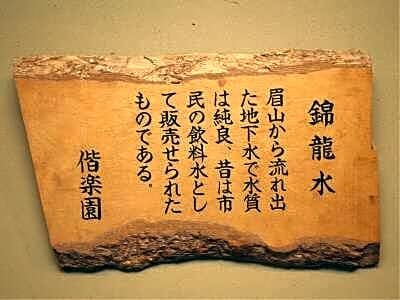 錦龍水
眉山から流れ出
た地下水で水質
は純良、昔は市
民の飲料水とし
て販売せられた
ものである。
偕楽園